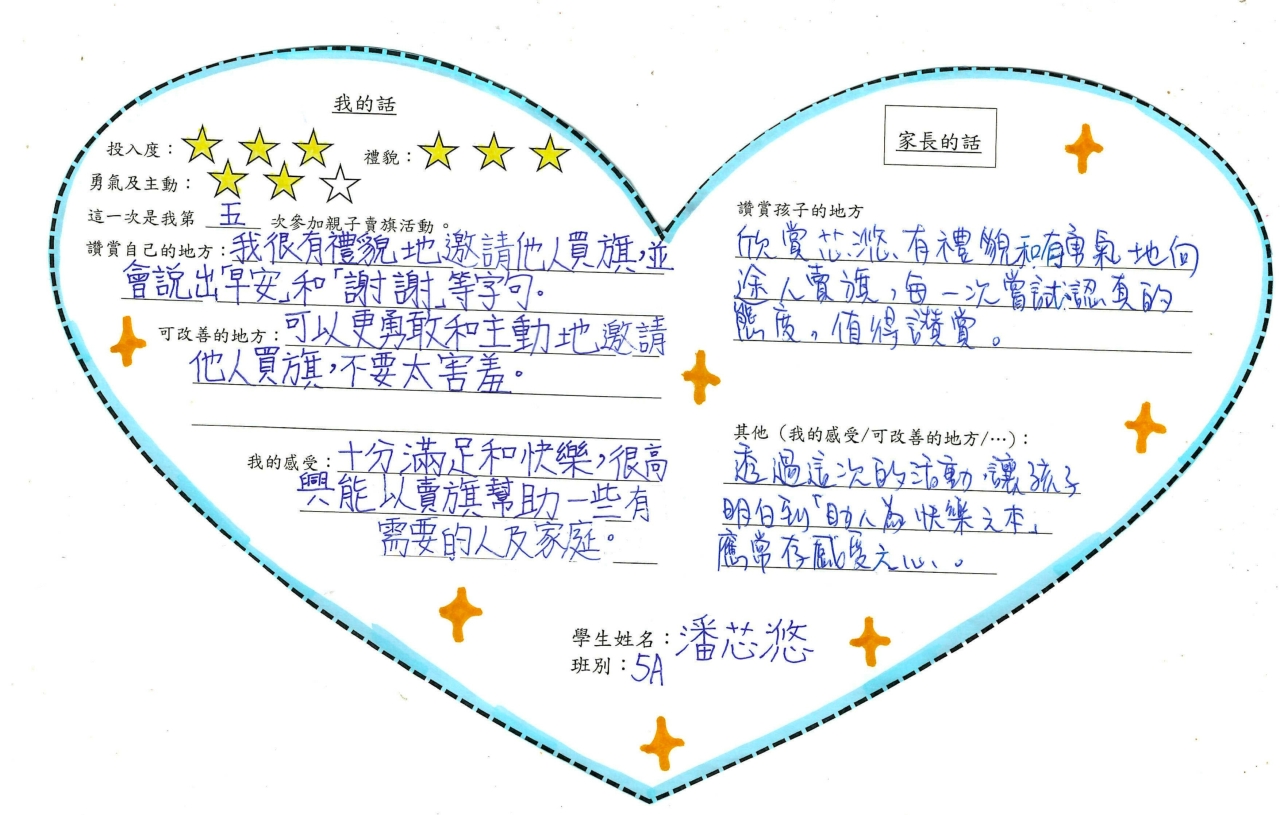 我的話
投入度：
禮貌：
勇氣及主動：
這一次是我第 五 次參加親子賣旗活動。
讚賞自己的地方：我很有禮貌地邀請他人買旗，並
會説出「早安」和「謝謝」等字句。
可改善的地方：可以更勇敢和主動地邀請
他人買旗，不要太害羞。
我的感受：十分滿足和快樂，很高
興能以賣旗幫助一些有
需要的人及家庭。
家長的話
讚賞孩子的地方
欣賞芯滺有禮貌和有勇氣地向
途人賣旗，每一次嘗試認真的
態度，值得讚賞。
其他（我的感受/可改善的地方/…）：
透過這次的活動，讓孩子
明白到「助人為快樂之本」
應常存感愛之心。
學生姓名：潘芯滺
班別：5A